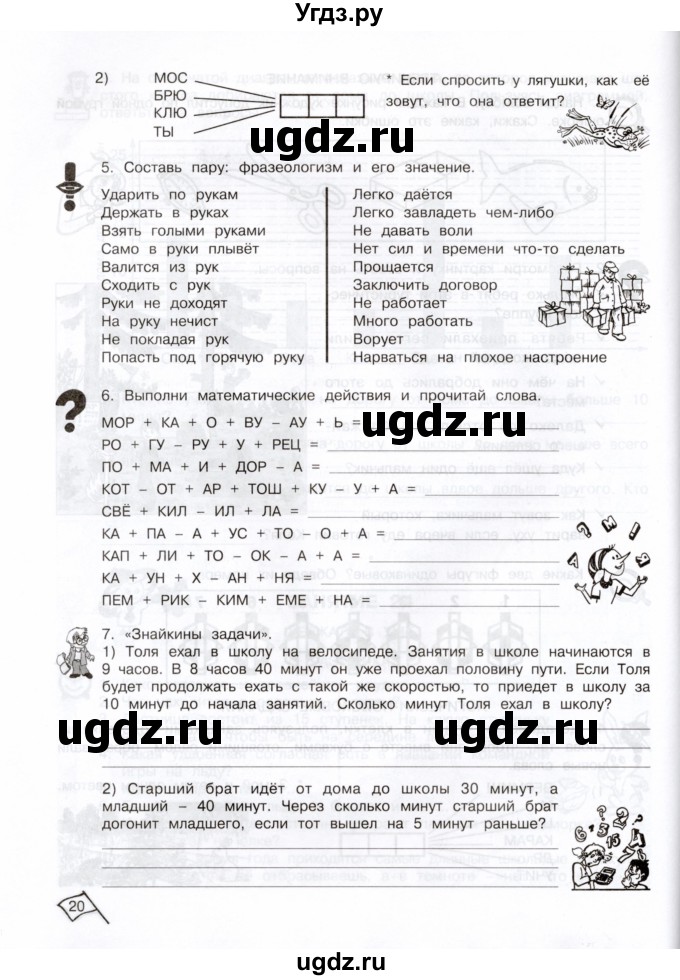 Угдз.ру
2)
МОС
БРЮ
КЛЮ
ТЫ
* Если спросить у лягушки, как её
зовут, что она ответит?
5. Составь пару: фразеологизм и его значение.
Ударить по рукам
Держать в руках
Взять голыми руками
Само в руки плывёт
Валится из рук
Сходить с рук
Руки не доходят
На руку нечист
Не покладая рук
Попасть под горячую руку
Легко даётся
Легко завладеть чем-либо
Не давать воли
Нет сил и времени что-то сделать
Прощается
Заключить договор
Не работает
Много работать
Ворует
Нарваться на плохое настроение
6. Выполни математические действия и прочитай слова.
РО + ГУ – РУ + У + РЕЦ =
ПО + МА + И + ДОР – А =
КОТ – ОТ + АР + ТОШ + КУ – У + А =
СВЁ + КИЛ – ИЛ + ЛА =
КА + ПА – А + УС + ТО – О + А =
КАП + ЛИ + ТО – ОК – А + А =
КА + УН + Х – АН + НЯ =
ПЕМ + РИК – КИМ + ЕМЕ + НА =
7. «Знайкины задачи».
1) Толя ехал в школу на велосипеде. Занятия в школе начинаются в
9 часов. В 8 часов 40 минут он уже проехал половину пути. Если Толя
будет продолжать ехать с такой же скоростью, то приедет в школу за
10 минут до начала занятий. Сколько минут Толя ехал в школу?
2) Старший брат идёт от дома до школы 30 минут, а
младший – 40 минут. Через сколько минут старший брат
догонит младшего, если тот вышел на 5 минут раньше?
20
ugdz.ru
ugdz.ru
ugdz.ru
ugdz.ru
ugdz.ru
ugdz.ru
ugdz.ru
ugdz.ru